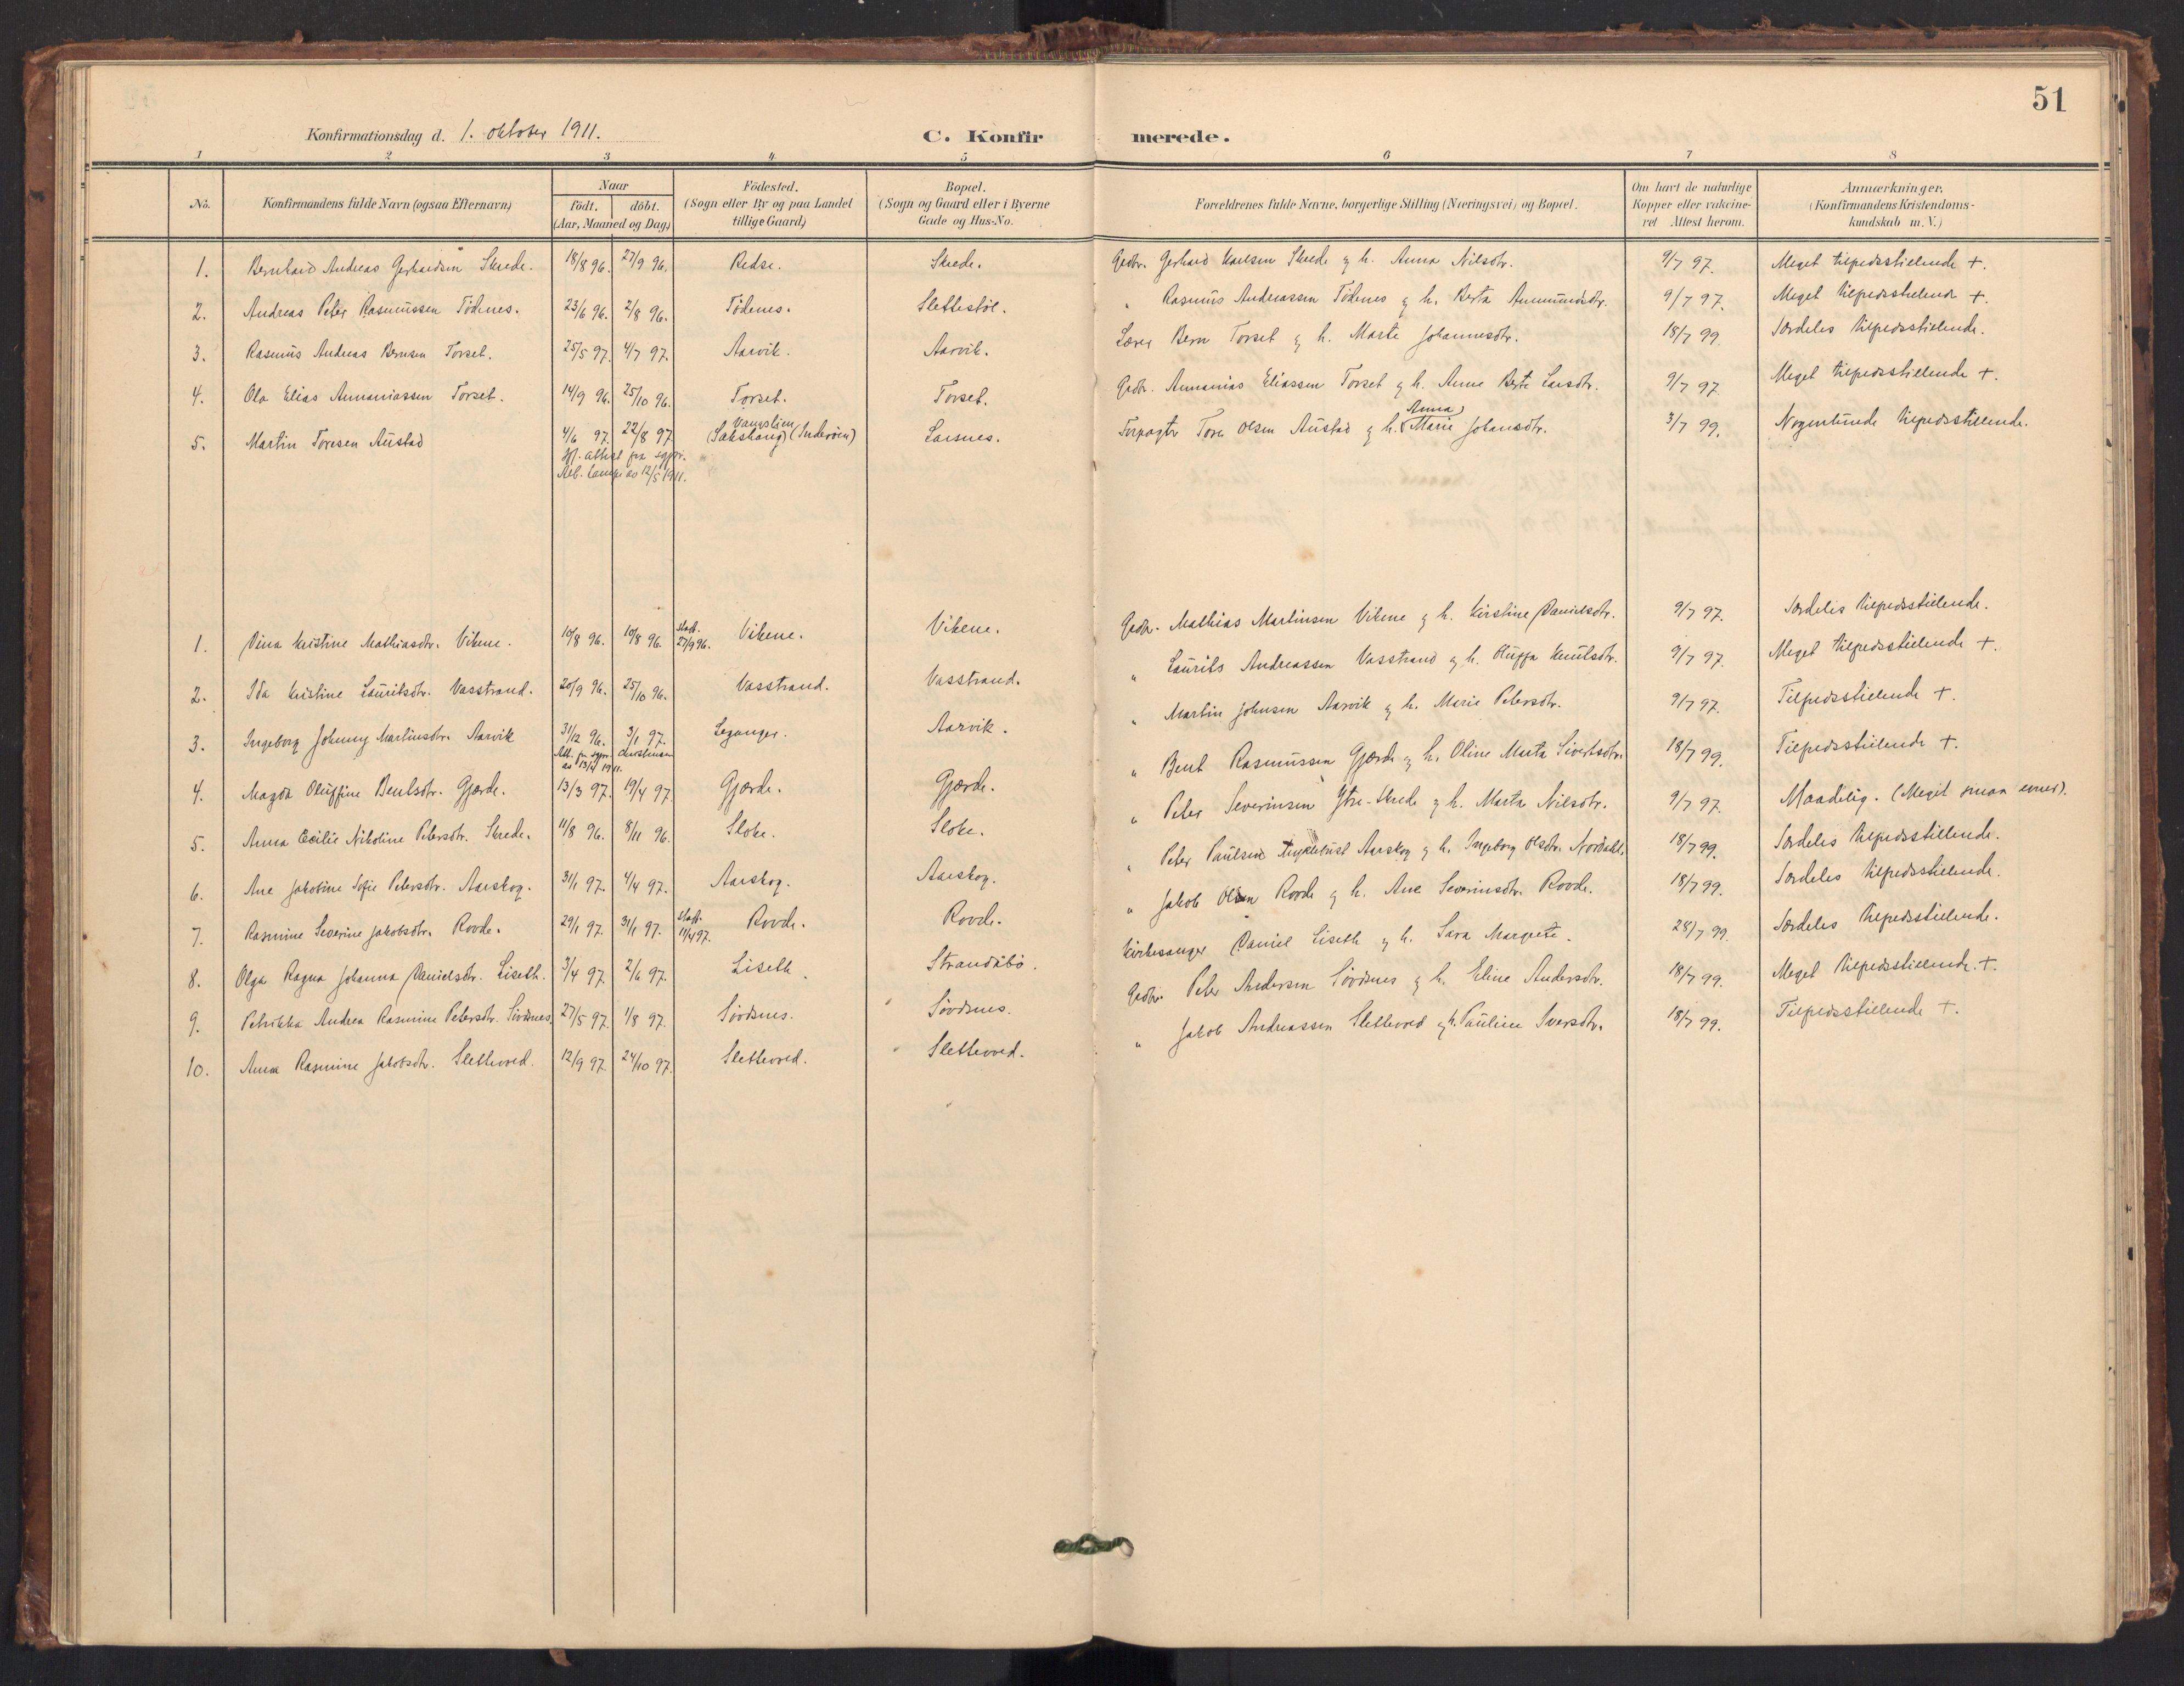 51
Konfirmationsdag d. 1. oktober 1911. C. Konfirmerede.
1 2 3 4 5 6 7 8
No. Konfirmandens fulde Navn (ogsaa Efternavn) Naar født. døbt. (Aar, Maaned og Dag) Födested. (Sogn eller By og paa Landet tillige Gaard) Bopæl. (Sogn og Gaard eller i Byerne Gade og Hus-No. Forældrenes fulde Navne, borgerlige Stilling (Næringsvei) og Bopæl. Om havt de naturlige Kopper eller vakcineret Attest herom. Anmærkninger. (Konfirmandens Kristendomskundskab m. V.)
1. Bernhard Andreas Gerhardsen Skrede. 18/8 96. 27/9 96. Redse. Skrede. Gbr. Gerhard Karlsen Skrede g h. Anna Nilsdtr. 9/7 97. Meget tilfredsstillende +.
2. Andreas Peter Rasmussen Födenes. 23/6 96. 2/8 96. Födenes. Slettestöl. " Rasmus Andreassen Födenes g h. Berta Aanmundsdtr. 9/7 97. Meget tilfredsstillende +.
3. Rasmus Andreas Bernsen Torset. 25/5 97. 4/7 97. Aarvik. Aarvik. Lærer Bern Torset g h. Marte Johannesdtr. 18/7 99. Særdeles tilfredsstillende.
4. Ola Elias Annaniassen Torset. 14/9 96. 25/10 96. Torset. Torset. Gbr. Annanias Eliassen Torset g h. Anne Berte Larsdtr. 9/7 97. Meget tilfredsstillende +.
5. Martin Toresen Austad 4/6 97. 22/8 97. Vangslien (Sakshaug) (Inderøen) Larsnes. Forpagter Tore Olsen Austad g h. Anna Marie Johansdtr. 3/7 99. Nogenlunde tilfredsstillende.
Ifl. attest fra sgpr.
av 12/5 1911.
1. Dina Kristine Mathiasdtr. Vikene. 10/8 96. 10/8 96. stadf. 27/9 96. Vikene. Vikene. Gbr. Mathias Martinsen Vikene g h. Kirstine Danielsdtr. 9/7 97. Særdeles tilfredsstillende.
2. Ida Kristine Lauritsdtr. Vasstrand. 20/9 96. 25/10 96. Vasstrand. Vasstrand. " Laurits Andreassen Vasstrand g h. Oluffa Knutsdtr. 9/7 97. Meget tilfredsstillende +.
3. Ingeborg Johnny Martinsdtr. Aarvik 31/12 96. 3/1 97. Leganger. Aarvik. " Martin Johnsen Aarvik g h. Marie Petersdtr. 9/7 97. Tilfredsstillende +.
Att. fr. sgpr. Christensen
av 13/2 1911.
4. Magda Oluffine Bentsdtr. Gjerde. 13/3 97. 19/4 97. Gjerde. Gjerde. " Bent Rasmussen Gjerde g h. Oline Marta Sivertsdtr. 18/7 99. Tilfredsstillende +.
5. Anna Cecilie Nikoline Petersdtr. Skrede. 11/8 96. 8/11 96. Sloke. Sloke. " Peter Severinsen Ytre-Skrede g h. Marta Nilsdtr. 9/7 97. Maadelig. (Meget smaa evner).
6. Ane Jakobine Sofie Petersdtr. Aarskog. 31/1 97. 4/4 97. Aarskog. Aarskog. " Peter Paulsen Myklebust Aarskog g h. Ingeborg Olsdtr. Nordahl. 18/7 99. Særdeles tilfredsstillende.
7. Rasmine Severine Jakobsdtr. Rovde. 29/1 97. 31/1 97. stadf. 11/4 97. Rovde. Rovde. " Jakob Olsen Rovde g h. Ane Severinsdtr. Rovde. 18/7 99. Særdeles tilfredsstillende.
8. Olga Ragna Johanna Danielsdtr. Liseth. 3/4 97. 2/6 97. Liseth. Strandabö. Kirkesanger Daniel Liseth g h. Sara Margrete. 28/7 99. Særdeles tilfredsstillende.
9. Petrikka Andrea Rasmine Petersdtr. Sørdsnes. 27/5 97. 1/8 97. Sørdsnes. Sørdsnes. Gbr. Peter Andersen Sørdsnes g h. Eline Andersdtr. 18/7 99. Meget tilfredsstillende. +.
10. Anna Rasmine Jakobsdtr. Slettevord. 12/9 97. 24/10 97. Slettevord. Slettevord. " Jakob Andreassen Slettevord g h. Pauline Iversdtr. 18/7 99. Tilfredsstillende +.